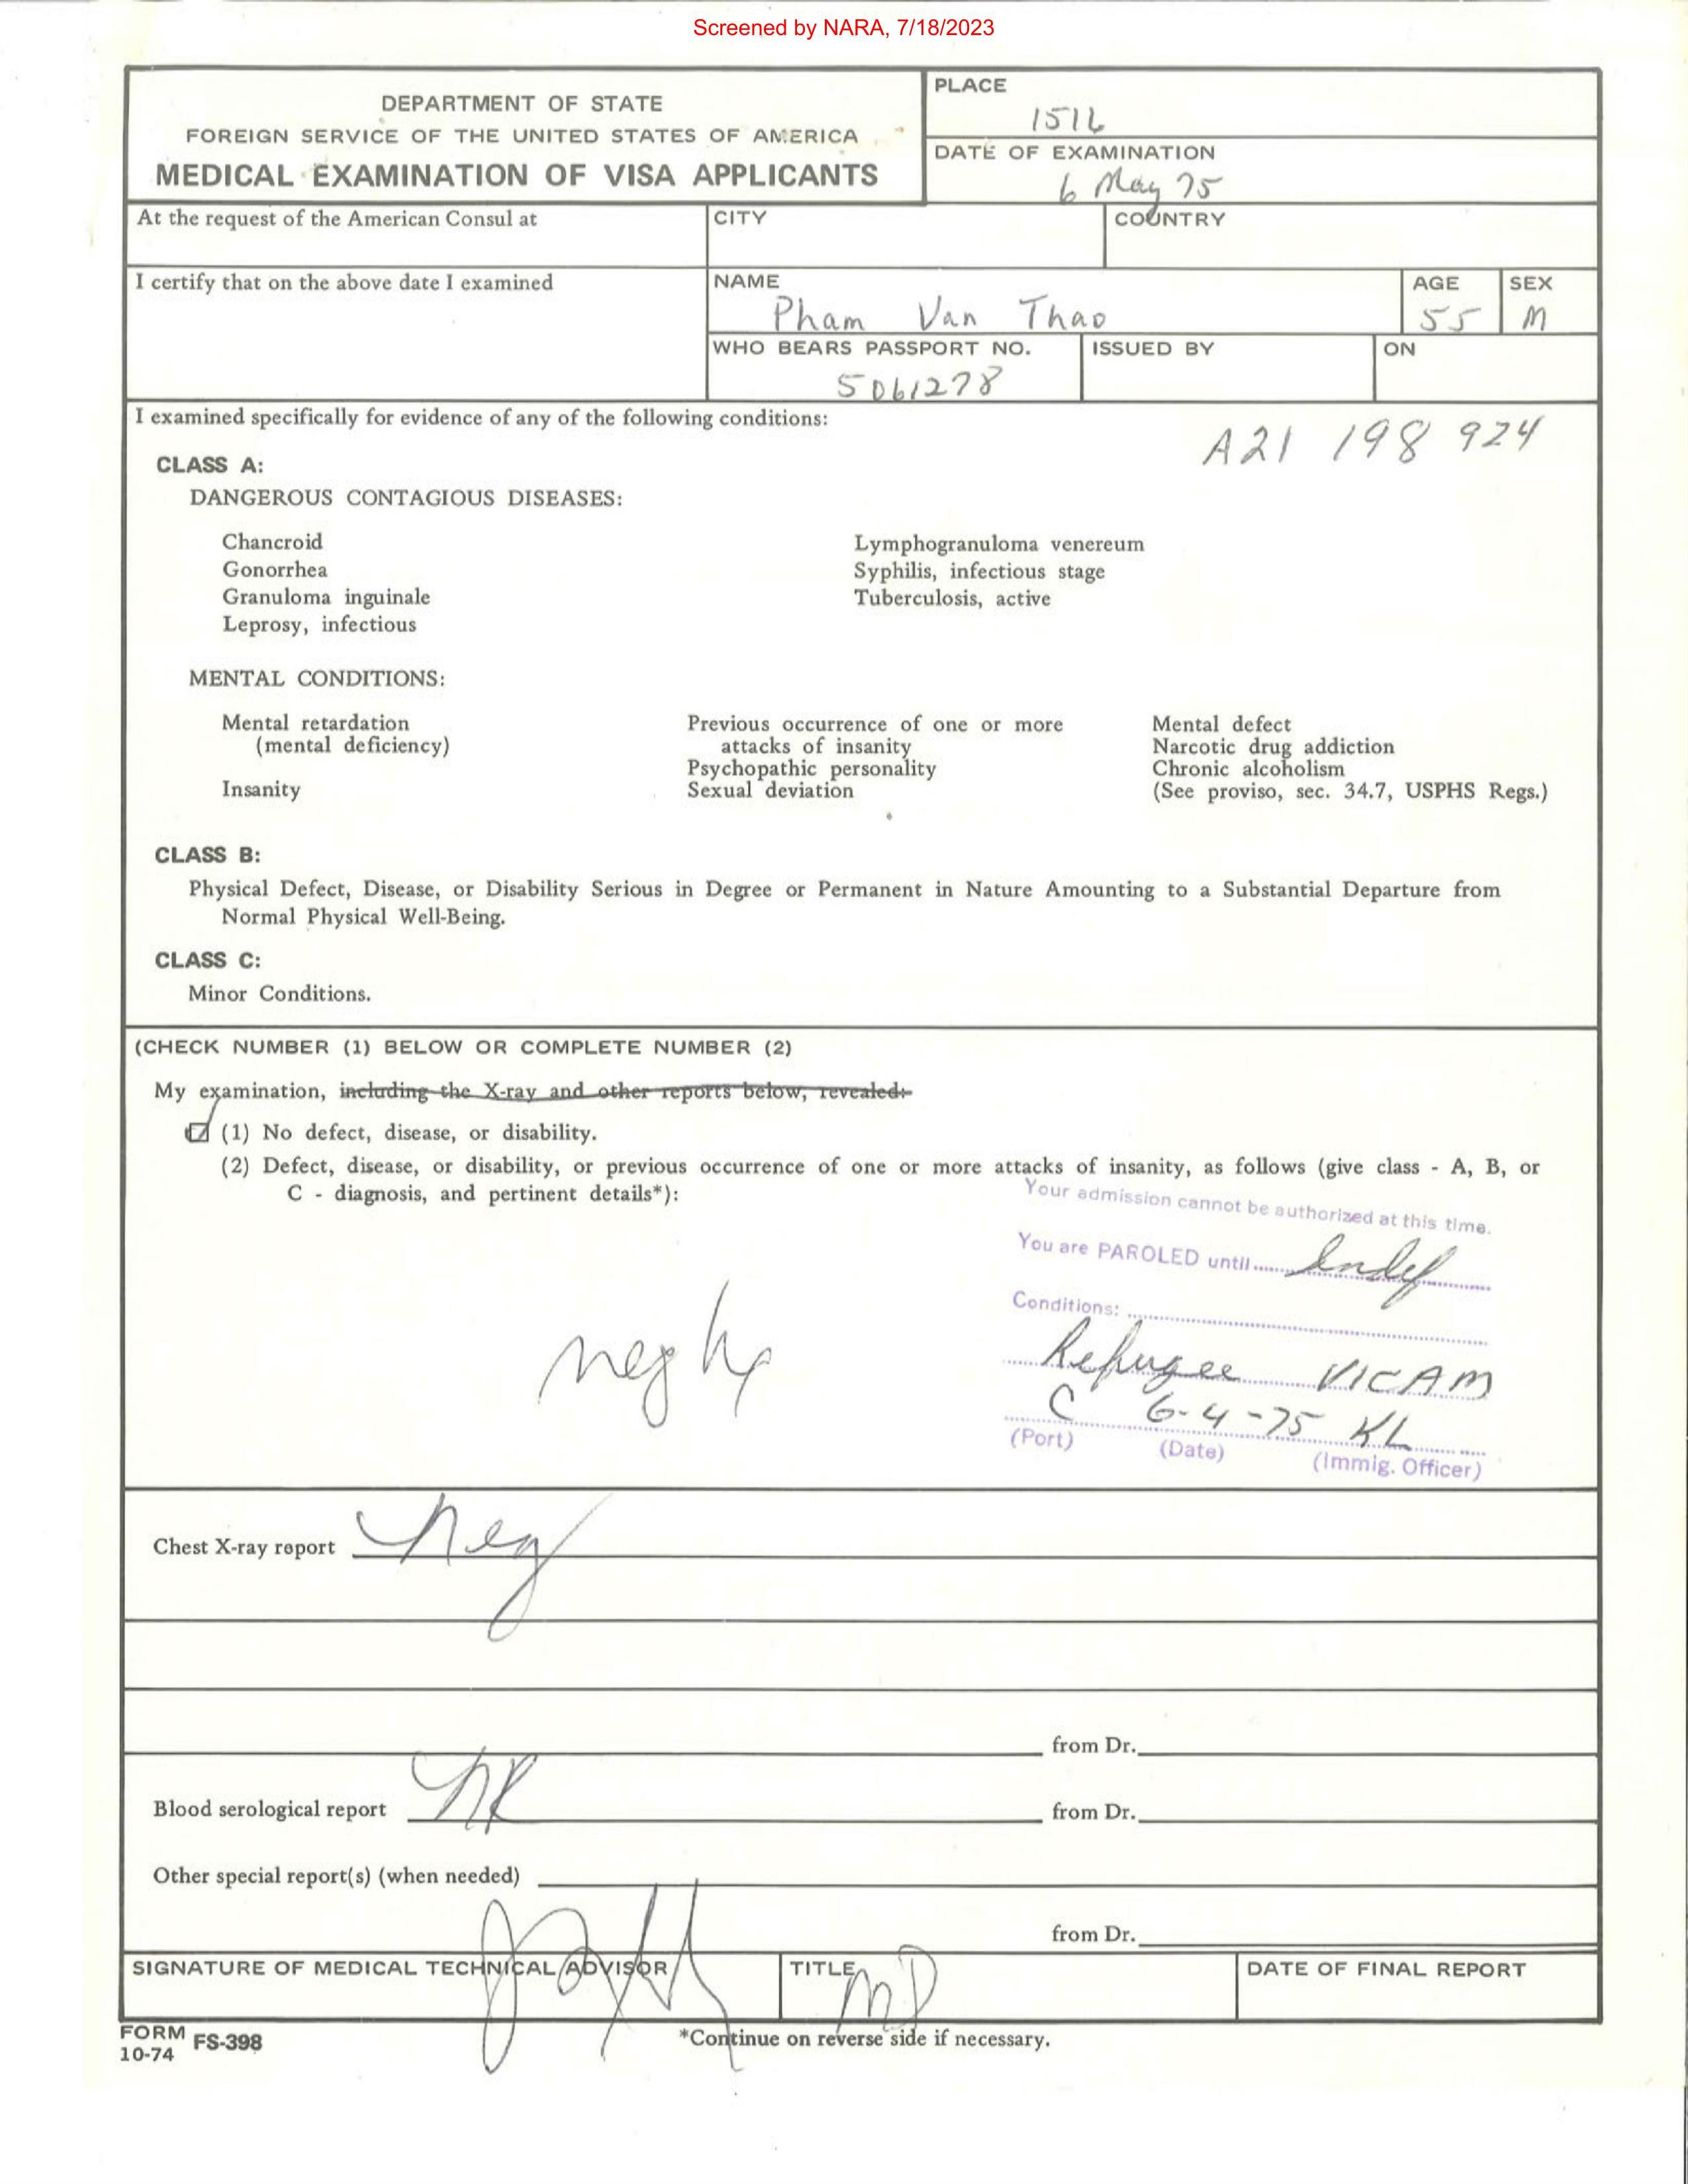 Screened by NARA, 7/18/2023
DEPARTMENT OF STATE
FOREIGN SERVICE OF THE UNITED STATES OF AMERICA
MEDICAL EXAMINATION OF VISA APPLICANTS
PLACE
DATE OF EXAMINATION
6 May 75
At the request of the American Consul at
CITY
COUNTRY
I certify that on the above date I examined
NAME
Pham Van Thao
AGE
55
SEX
M
WHO BEARS PASSPORT NO.
5061278
ISSUED BY
ON
I examined specifically for evidence of any of the following conditions:
A21 198 924
CLASS A:
DANGEROUS CONTAGIOUS DISEASES:
Chancroid
Gonorrhea
Granuloma inguinale
Leprosy, infectious
Lymphogranuloma venereum
Syphilis, infectious stage
Tuberculosis, active
MENTAL CONDITIONS:
Mental retardation
(mental deficiency)
Insanity
Previous occurrence of one or more
attacks of insanity
Psychopathic personality
Sexual deviation
Mental defect
Narcotic drug addiction
Chronic alcoholism
(See proviso, sec. 34.7, USPHS Regs.)
CLASS B:
Physical Defect, Disease, or Disability Serious in Degree or Permanent in Nature Amounting to a Substantial Departure from
Normal Physical Well-Being.
CLASS C:
Minor Conditions.
(CHECK NUMBER (1) BELOW OR COMPLETE NUMBER (2)
My examination, including the X-ray and other reports below, revealed:
(1) No defect, disease, or disability.
(2) Defect, disease, or disability, or previous occurrence of one or more attacks of insanity, as follows (give class - A, B, or
C - diagnosis, and pertinent details*):
Your admission cannot be authorized at this time.
You are PAROLED until Indef
Conditions:
Refugee VICAM
C 6-4-75 KL
(Port) (Date) (Immig. Officer)
neg hx
Chest X-ray report neg
from Dr.
Blood serological report NR
from Dr.
Other special report(s) (when needed)
from Dr.
SIGNATURE OF MEDICAL TECHNICAL ADVISOR
TITLE
MD
DATE OF FINAL REPORT
FORM FS-398
10-74
*Continue on reverse side if necessary.